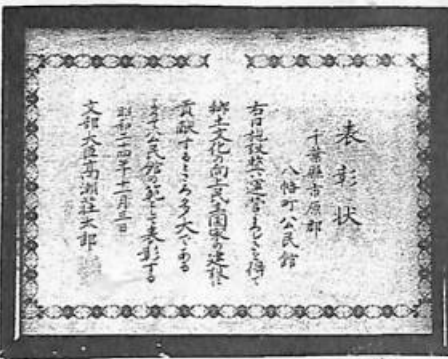 表彰状
千葉縣市原郡
八幡町公民館
右は施設整い運営よろしきを得て
郷土文化の向上民主國家の建設に
貢献するところ多大である
よって公民館の範として表彰する
昭和二十四年十一月三日
文部大臣高瀬荘太郎